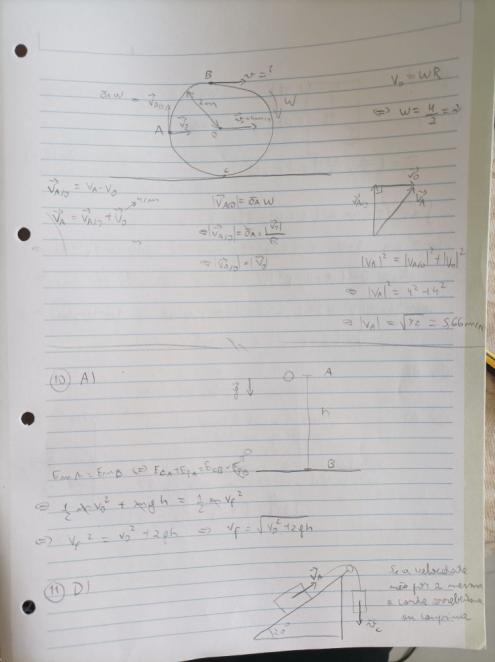 B v = ?
V₀ = WR
2m W
A V₀ O v=4m/s
⇔ W = 4/2 = 2
C
V_A/O = V_A - V_O
|V_A/O| = OA W
4m/s
V_A = V_A/O + V_O
⇒ |V_A/O| = OA · |V_O|/R
V_A/O V_O V_A
⇒ |V_A/O| = |V_O|
|V_A|² = |V_A/O|² + |V_O|²
⇒ |V_A|² = 4² + 4²
⇒ |V_A| = √32 = 5,66 m/s
10 A)
g O A
h
Em A = Em B ⇔ Ec A + Ep A = Ec B + Ep B 0
B
⇒ 1/2 m v₀² + m g h = 1/2 m v_f²
⇒ v_f² = v₀² + 2gh ⇒ v_f = √v₀² + 2gh
11 D)
V_A
Se a velocidade
não for a mesma
a corda arrebentava
ou comprime
20°
v_c